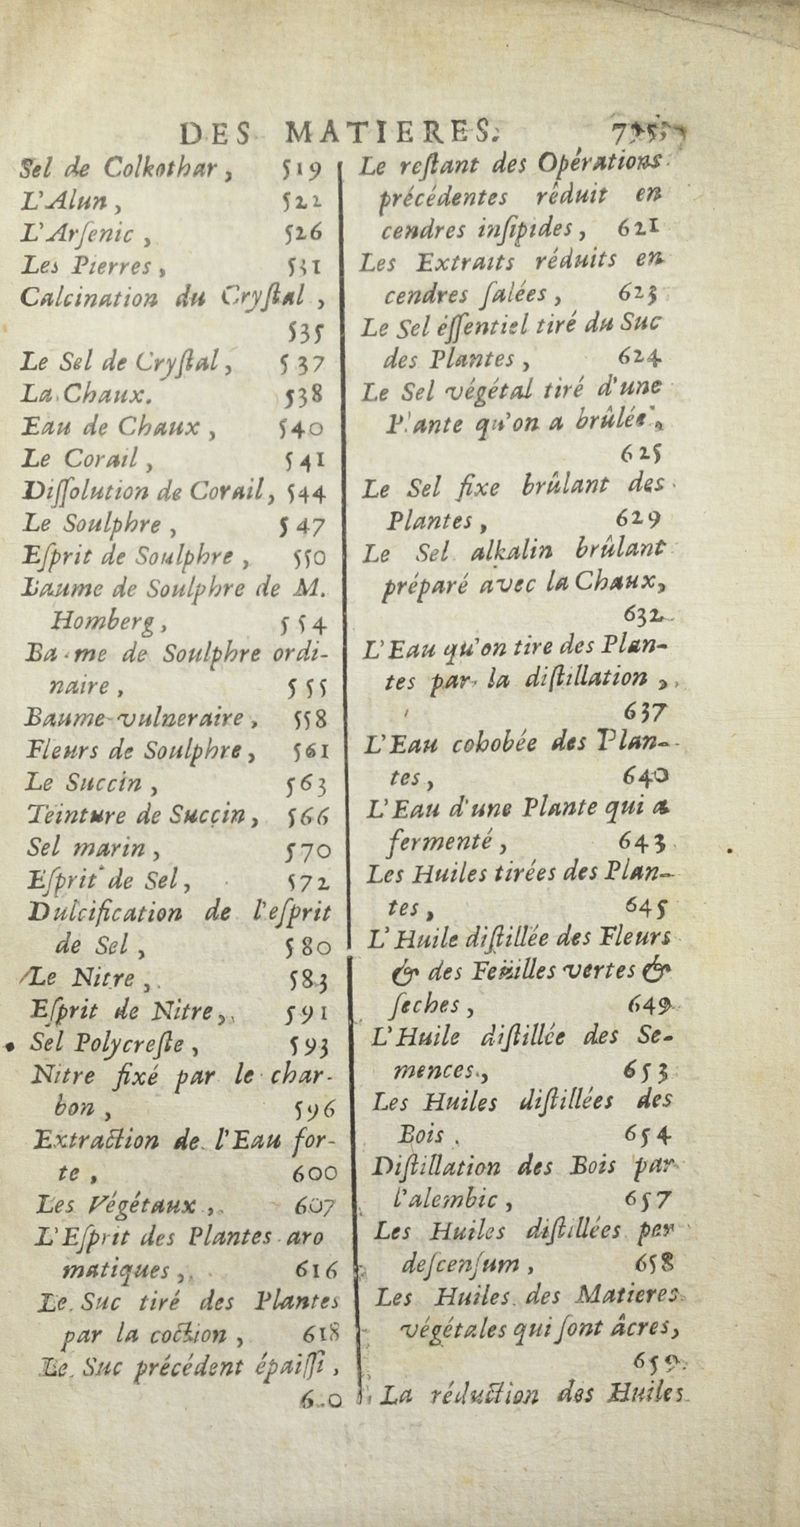 DES MATIERES.
Sel de Colkothar, 519
L'Alun, 522
L'Arſenic, 526
Les Pierres, 531
Calcination du Cryſtal,
535
Le Sel de Cryſtal, 537
La Chaux. 538
Eau de Chaux, 540
Le Corail, 541
Diſſolution de Corail, 544
Le Soulphre, 547
Eſprit de Soulphre, 550
Baume de Soulphre de M.
Homberg, 554
Ba me de Soulphre ordi-
naire, 555
Baume vulneraire, 558
Fleurs de Soulphre, 561
Le Succin, 563
Teinture de Succin, 566
Sel marin, 570
Eſprit de Sel, 572
Dulcification de l'eſprit
de Sel, 580
Le Nitre, 583
Eſprit de Nitre, 591
Sel Polycreſte, 593
Nitre fixé par le char-
bon, 596
Extraction de l'Eau for-
te, 600
Les Végétaux, 607
L'Eſprit des Plantes aro
matiques, 616
Le Suc tiré des Plantes
par la coction, 618
Le Suc précédent épaiſſi,
6 0
Le reſtant des Opérations
précédentes réduit en
cendres inſipides, 621
Les Extraits réduits en
cendres ſalées, 623
Le Sel éſſentiel tiré du Suc
des Plantes, 624
Le Sel végétal tiré d'une
P ante qu'on a brûlée,
625
Le Sel fixe brûlant des
Plantes, 629
Le Sel alkalin brûlant
préparé avec la Chaux,
632
L'Eau qu'on tire des Plan-
tes par la diſtillation,
637
L'Eau cohobée des Plan-
tes, 640
L'Eau d'une Plante qui a
fermenté, 643
Les Huiles tirées des Plan-
tes, 645
L'Huile diſtillée des Fleurs
& des Feüilles vertes &
ſeches, 649
L'Huile diſtillée des Se-
mences, 653
Les Huiles diſtillées des
Bois, 654
Diſtillation des Bois par
l'alembic, 657
Les Huiles diſtillées per
deſcenſum, 658
Les Huiles des Matieres
végétales qui ſont âcres,
659
La réduction des Huiles